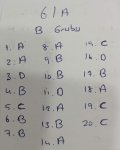 6/A
B Grubu
1. A 8. A 15. C
2. A 9. B 16. D
3. D 10. B 17. B
4. B 11. D 18. A
5. C 12. A 19. C
6. B 13. B 20. C
7. B 14. A